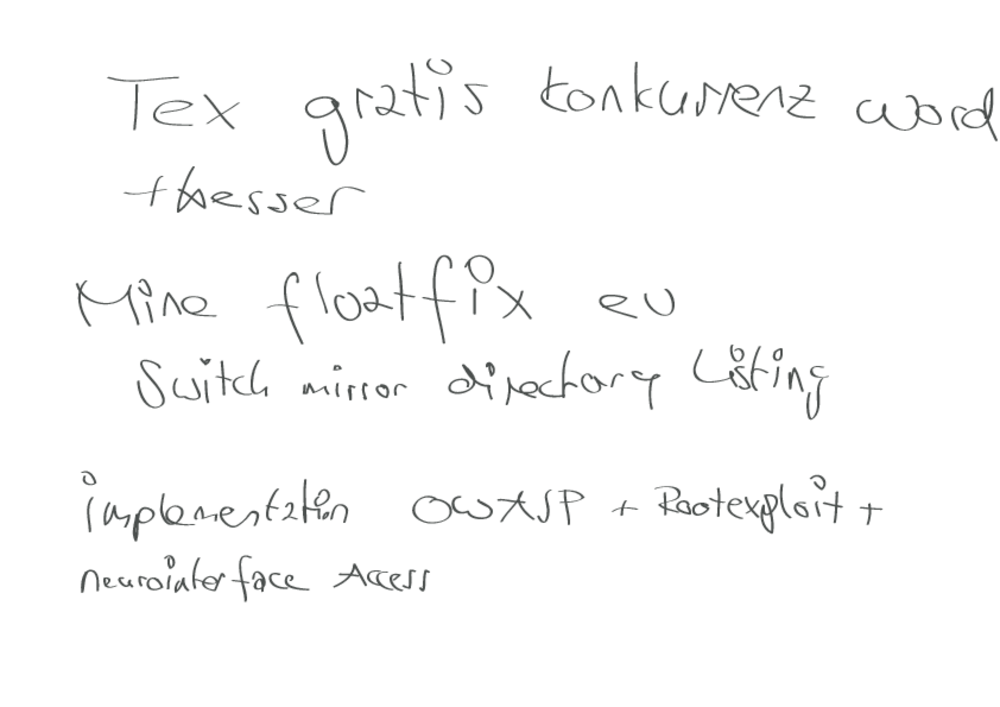 Tex gratis konkurrenz word
+ besser
Mine floatfix eu
Switch mirror directory Listing
implementation OWASP + Rootexploit +
neurointerface Access